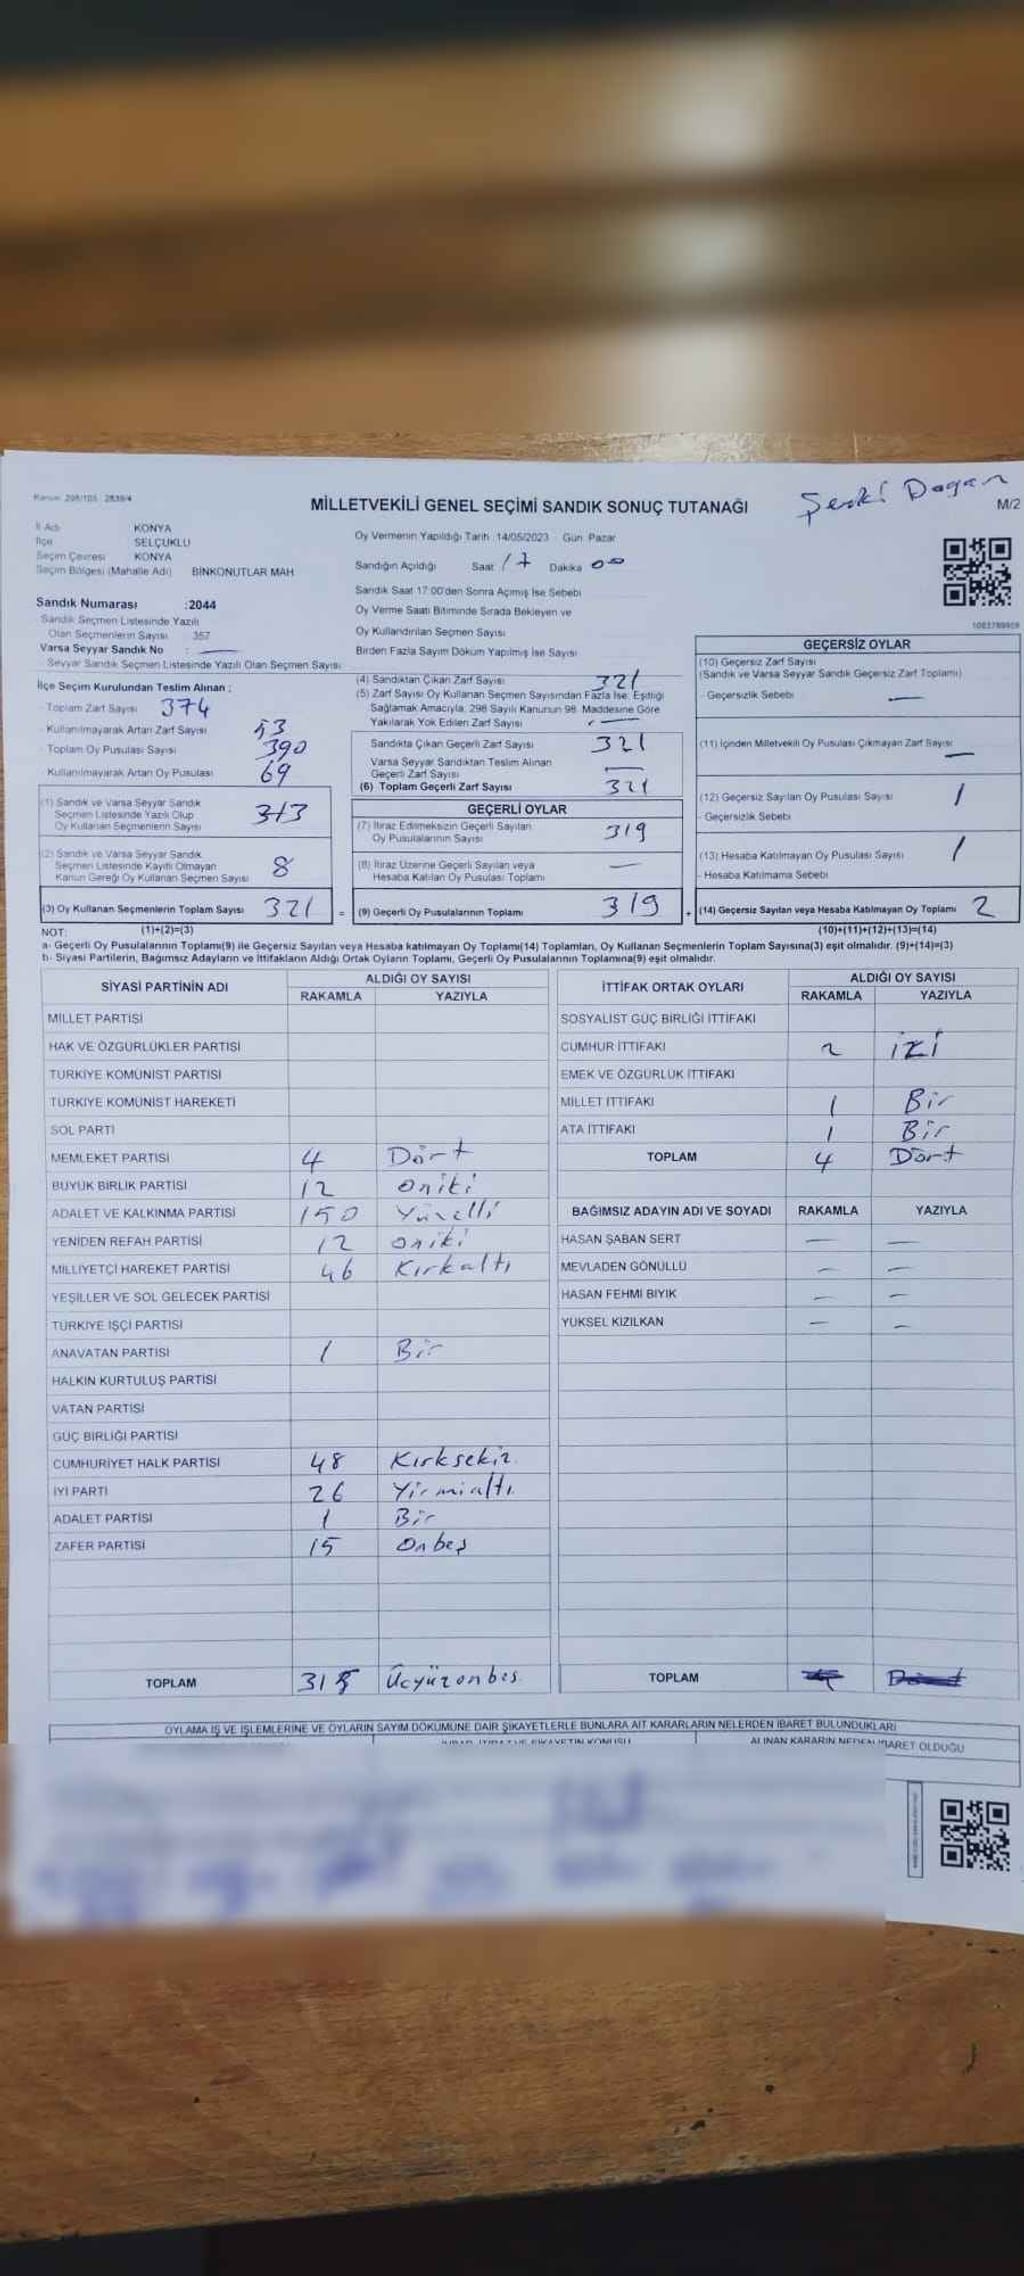 Kanun: 298/105 : 2839/4
MİLLETVEKİLİ GENEL SEÇİMİ SANDIK SONUÇ TUTANAĞI
Dogan
M/2
İl Adı KONYA
İlçe SELÇUKLU
Seçim Çevresi KONYA
Seçim Bölgesi (Mahalle Adı) BİNKONUTLAR MAH
Sandık Numarası :2044
Sandık Seçmen Listesinde Yazılı
Olan Seçmenlerin Sayısı 357
Varsa Seyyar Sandık No : —
Seyyar Sandık Seçmen Listesinde Yazılı Olan Seçmen Sayısı
Oy Vermenin Yapıldığı Tarih :14/05/2023 - Gün: Pazar
Sandığın Açıldığı Saat 17 Dakika 00
Sandık Saat 17:00'den Sonra Açımış İse Sebebi
Oy Verme Saati Bitiminde Sırada Bekleyen ve
Oy Kullandırılan Seçmen Sayısı
Birden Fazla Sayım Döküm Yapılmış İse Sayısı
İlçe Seçim Kurulundan Teslim Alınan ;
- Toplam Zarf Sayısı 374
- Kullanılmayarak Artan Zarf Sayısı 53
- Toplam Oy Pusulası Sayısı 390
Kullanılmayarak Artan Oy Pusulası 69
(1) Sandık ve Varsa Seyyar Sandık
Seçmen Listesinde Yazılı Olup
Oy Kullanan Seçmenlerin Sayısı 313
(2) Sandık ve Varsa Seyyar Sandık
Seçmen Listesinde Kayıtlı Olmayan
Kanun Gereği Oy Kullanan Seçmen Sayısı 8
(3) Oy Kullanan Seçmenlerin Toplam Sayısı 321 =
(4) Sandıktan Çıkan Zarf Sayısı 321
(5) Zarf Sayısı Oy Kullanan Seçmen Sayısından Fazla İse, Eşitliği
Sağlamak Amacıyla, 298 Sayılı Kanunun 98. Maddesine Göre
Yakılarak Yok Edilen Zarf Sayısı —
Sandıkta Çıkan Geçerli Zarf Sayısı 321
Varsa Seyyar Sandıktan Teslim Alınan
Geçerli Zarf Sayısı —
(6) Toplam Geçerli Zarf Sayısı 321
GEÇERLİ OYLAR
(7) İtiraz Edilmeksizin Geçerli Sayılan
Oy Pusulalarının Sayısı 319
(8) İtiraz Üzerine Geçerli Sayılan veya
Hesaba Katılan Oy Pusulası Toplamı —
(9) Geçerli Oy Pusulalarının Toplamı 319 +
1083789959
GEÇERSİZ OYLAR
(10) Geçersiz Zarf Sayısı
(Sandık ve Varsa Seyyar Sandık Geçersiz Zarf Toplamı)
- Geçersizlik Sebebi —
(11) İçinden Milletvekili Oy Pusulası Çıkmayan Zarf Sayısı —
(12) Geçersiz Sayılan Oy Pusulası Sayısı 1
- Geçersizlik Sebebi
(13) Hesaba Katılmayan Oy Pusulası Sayısı 1
- Hesaba Katılmama Sebebi
(14) Geçersiz Sayılan veya Hesaba Katılmayan Oy Toplamı 2
NOT: (1)+(2)=(3) (10)+(11)+(12)+(13)=(14)
a- Geçerli Oy Pusulalarının Toplamı(9) ile Geçersiz Sayılan veya Hesaba katılmayan Oy Toplamı(14) Toplamları, Oy Kullanan Seçmenlerin Toplam Sayısına(3) eşit olmalıdır. (9)+(14)=(3)
b- Siyasi Partilerin, Bağımsız Adayların ve İttifakların Aldığı Ortak Oyların Toplamı, Geçerli Oy Pusulalarının Toplamına(9) eşit olmalıdır.
SİYASİ PARTİNİN ADI ALDIĞI OY SAYISI
RAKAMLA YAZIYLA
MİLLET PARTİSİ
HAK VE ÖZGÜRLÜKLER PARTİSİ
TÜRKİYE KOMÜNİST PARTİSİ
TÜRKİYE KOMÜNİST HAREKETİ
SOL PARTİ
MEMLEKET PARTİSİ 4 Dört
BÜYÜK BİRLİK PARTİSİ 12 oniki
ADALET VE KALKINMA PARTİSİ 150 Yüzelli
YENİDEN REFAH PARTİSİ 12 oniki
MİLLİYETÇİ HAREKET PARTİSİ 46 Kırkaltı
YEŞİLLER VE SOL GELECEK PARTİSİ
TÜRKİYE İŞÇİ PARTİSİ
ANAVATAN PARTİSİ 1 Bir
HALKIN KURTULUŞ PARTİSİ
VATAN PARTİSİ
GÜÇ BİRLİĞİ PARTİSİ
CUMHURİYET HALK PARTİSİ 48 Kırksekiz
İYİ PARTİ 26 Yirmialtı
ADALET PARTİSİ 1 Bir
ZAFER PARTİSİ 15 Onbeş
TOPLAM 315 Üçyüzonbeş
İTTİFAK ORTAK OYLARI ALDIĞI OY SAYISI
RAKAMLA YAZIYLA
SOSYALİST GÜÇ BİRLİĞİ İTTİFAKI
CUMHUR İTTİFAKI 2 iki
EMEK VE ÖZGÜRLÜK İTTİFAKI
MİLLET İTTİFAKI 1 Bir
ATA İTTİFAKI 1 Bir
TOPLAM 4 Dört
BAĞIMSIZ ADAYIN ADI VE SOYADI RAKAMLA YAZIYLA
HASAN ŞABAN SERT — —
MEVLADEN GÖNÜLLÜ — —
HASAN FEHMİ BIYIK — —
YÜKSEL KIZILKAN — —
TOPLAM
OYLAMA İŞ VE İŞLEMLERİNE VE OYLARIN SAYIM DÖKÜMÜNE DAİR ŞİKAYETLERLE BUNLARA AİT KARARLARIN NELERDEN İBARET BULUNDUKLARI
ALINAN KARARIN NEDEN İBARET OLDUĞU